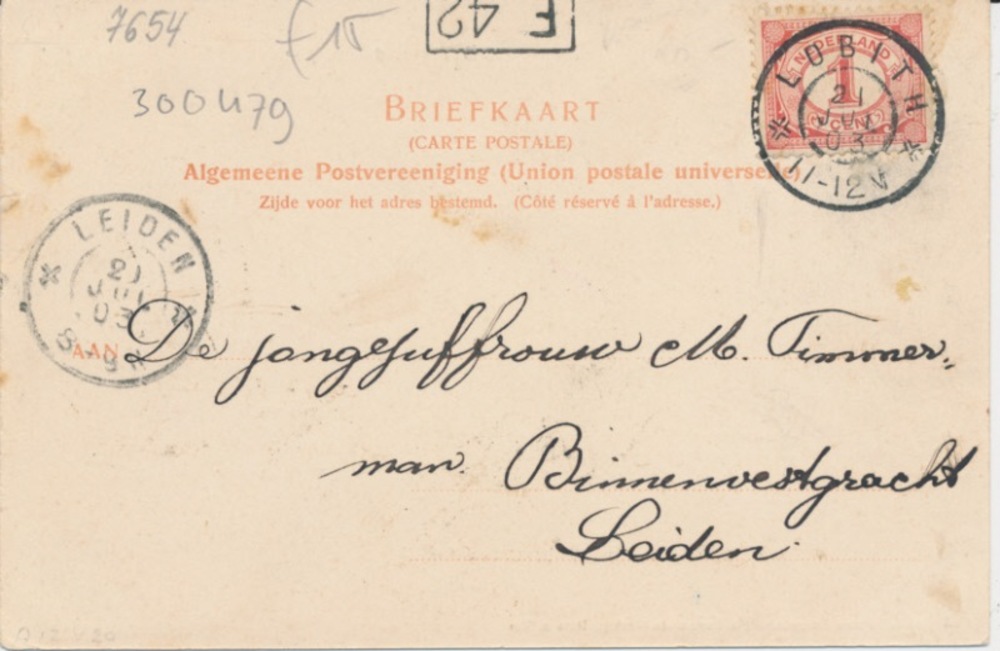 7654
f 15
F 42
300479
NEDERLAND
1
CENT
LOBITH
21
JUL
03
11-12V
BRIEFKAART
(CARTE POSTALE)
Algemeene Postvereeniging (Union postale universelle)
Zijde voor het adres bestemd. (Côté réservé à l'adresse.)
LEIDEN
21
03
AAN De jongejuffrouw M. Timmer-
man. Binnenvestgracht
Leiden.